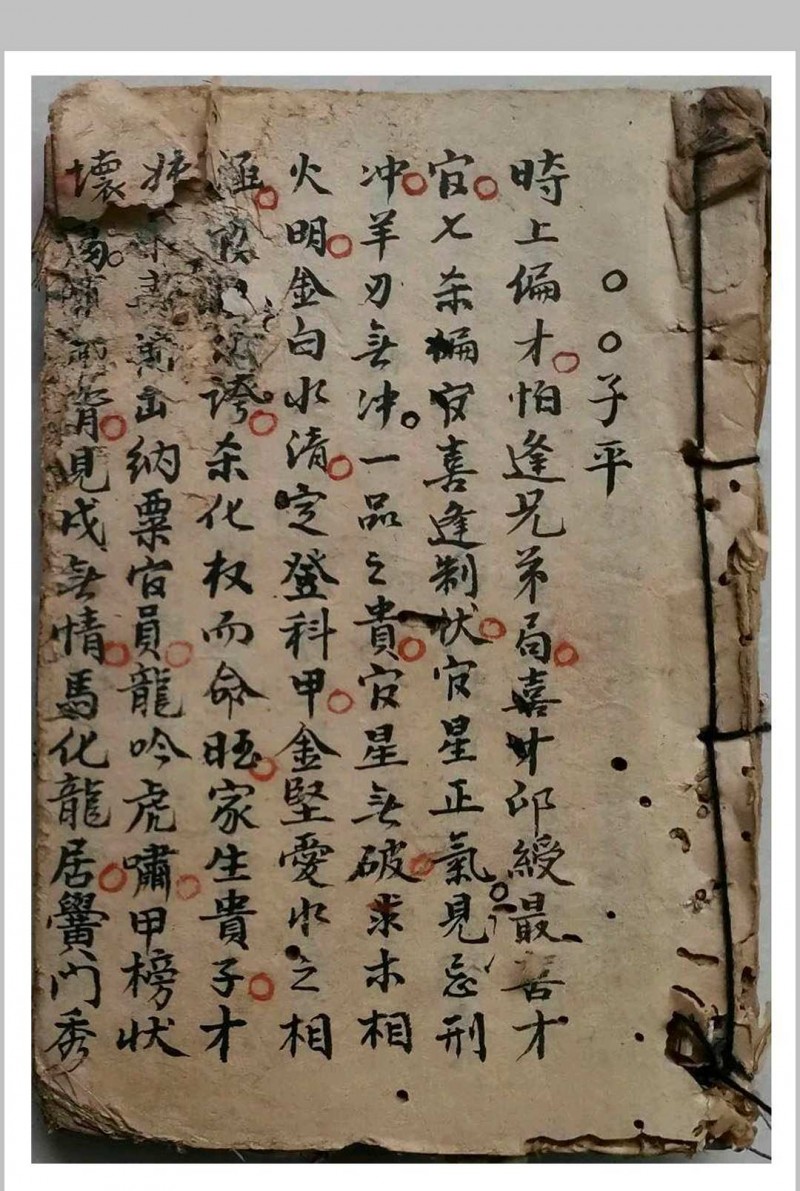 子平
時上偏才怕逢兄弟局喜才卬綬最
才官七杀偏官喜逢制伏官星正氣見忌刑
冲羊刃無冲一品之貴官星無破求木相
火明金白水清定登科甲金堅愛水之相
誇杀化权而命旺家生貴子才
納粟官員龍吟虎嘯甲榜状
壞見戌無情馬化龍居黌门秀